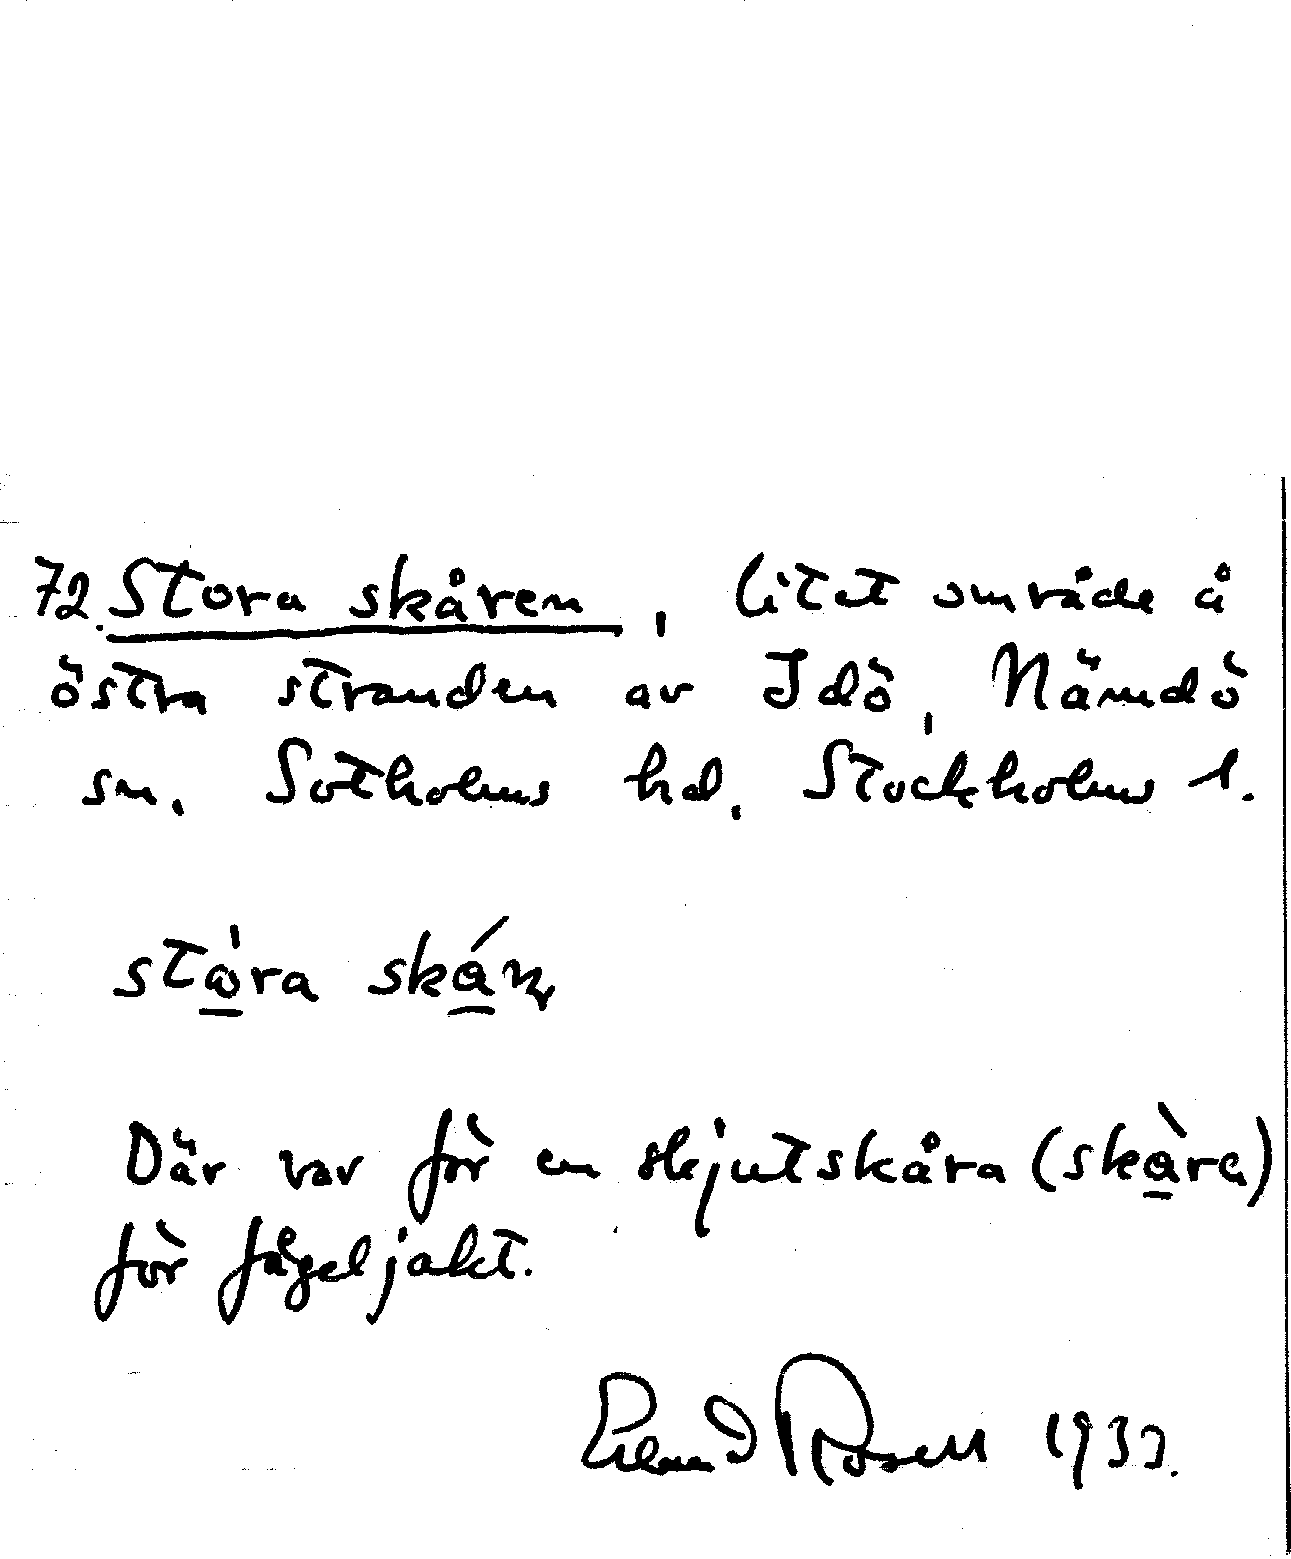 72. Stora skåren, litet område å
östra stranden av Idö, Nämdö
sn. Sotholms hd. Stockholms l.
stora
Där var för en skjutskåra (skåra)
för fågeljakt.
Rosell 1933.